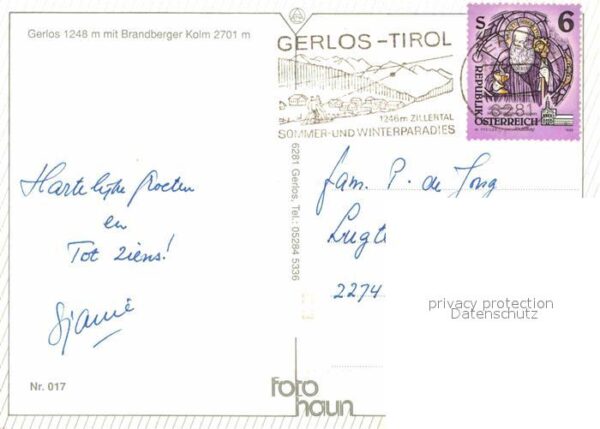 Gerlos 1248 m mit Brandberger Kolm 2701 m
GERLOS-TIROL
1246m ZILLERTAL
SOMMER-UND WINTERPARADIES
6
REPUBLIK
ÖSTERREICH
6281
Hartelijke Groeten
en
Tot ziens!
Sjanie
6281 Gerlos, Tel.: 05284 5336
fam. P. de Jong
Lugte
2274
privacy protection
Datenschutz
Nr. 017
foto
haun